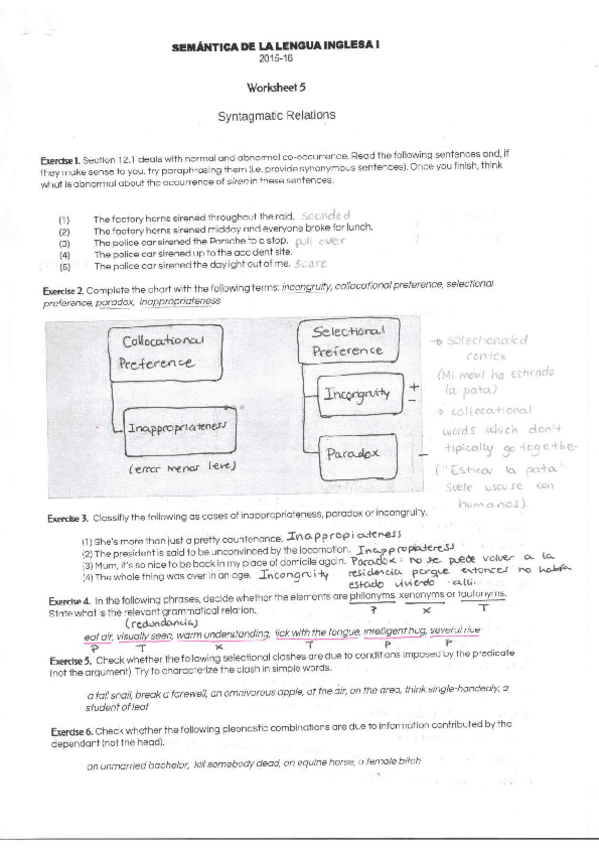 SEMÁNTICA DE LA LENGUA INGLESA I
2015-16
Worksheet 5
Syntagmatic Relations
Exercise 1. Section 12.1 deals with normal and abnormal co-occurrence. Read the following sentences and, if
they make sense to you, try paraphrasing them (i.e. provide synonymous sentences). Once you finish, think
what is abnormal about the occurrence of siren in these sentences.
(1) The factory horns sirened throughout the raid. Sounded
(2) The factory horns sirened midday and everyone broke for lunch.
(3) The police car sirened the Porsche to a stop. pull over
(4) The police car sirened up to the accident site.
(5) The police car sirened the daylight out of me. Scare
Exercise 2. Complete the chart with the following terms: incongruity, collocational preference, selectional
preference, paradox, inappropriateness
Collocational
Preference
Inappropriateness
(error menos leve)
Selectional
Preference
Incongruity
+
-
Paradox
-
→ Selectional
contex
(Mi movil ha estirado
la pata)
→ collocational
words which don't
tipically go together
("Estirar la pata"
suele usarse con
humanos).
Exercise 3. Classifiy the following as cases of inappropriateness, paradox or incongruity.
(1) She's more than just a pretty countenance. Inappropiateness
(2) The president is said to be unconvinced by the locomotion. Inappropiateness
(3) Mum, it's so nice to be back in my place of domicile again. Paradox: no se puede volver a la
residencia porque entonces no habría
estado viviendo allí.
(4) The whole thing was over in an age. Incongruity
Exercise 4. In the following phrases, decide whether the elements are philonyms, xenonyms or tautonyms.
State what is the relevant grammatical relation.
P X T
(redundancia)
eat air, visually seen, warm understanding, lick with the tongue, intelligent hug, several rice
P T X T P P
Exercise 5. Check whether the following selectional clashes are due to conditions imposed by the predicate
(not the argument). Try to characterize the clash in simple words.
a fail snail, break a farewell, an omnivorous apple, at the air, on the area, think single-handedly, a
student of leaf
Exercise 6. Check whether the following pleonastic combinations are due to information contributed by the
dependant (not the head).
an unmarried bachelor, kill somebody dead, an equine horse, a female bitch